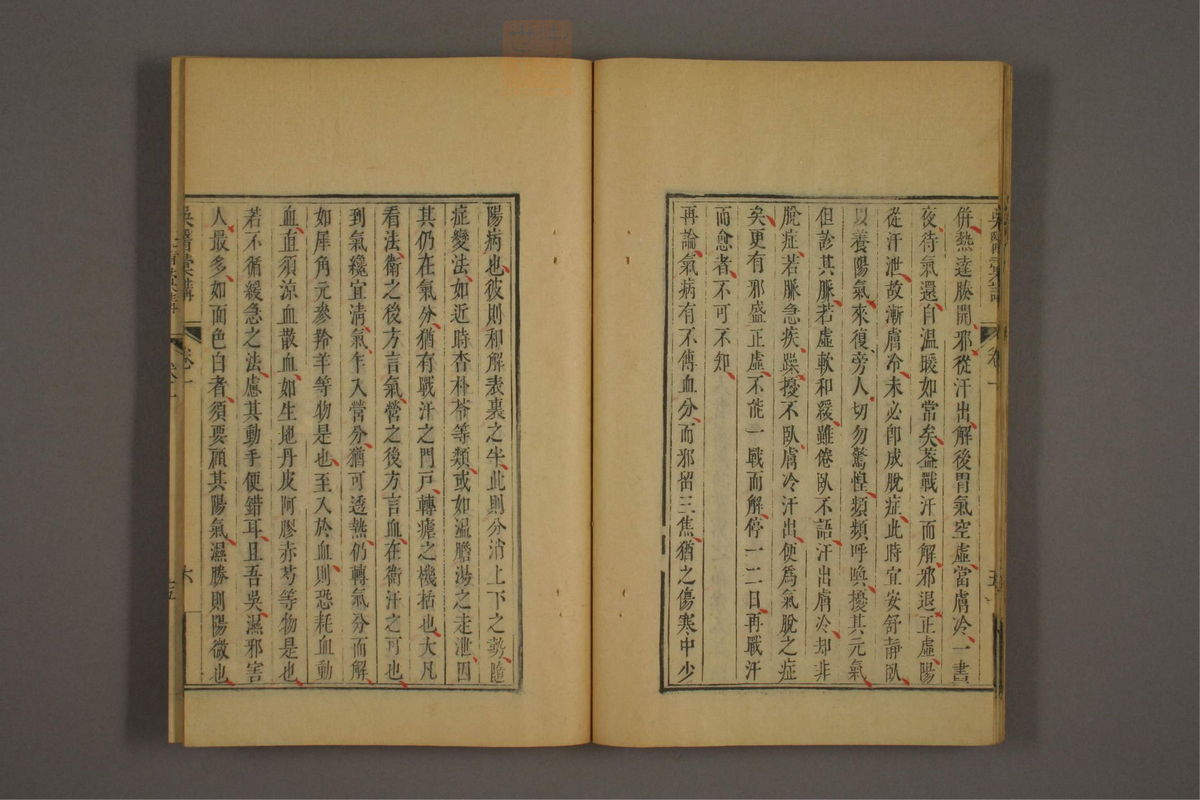 併熱達腠開邪從汗出解後胃氣空虛當膚冷一晝
夜待氣還自溫暖如常矣葢戰汗而解邪退正虛陽
從汗泄故漸膚冷未必卽成脫症此時宜安舒靜臥
以養陽氣來復旁人切勿驚惶頻頻呼喚擾其元氣
但診其脈若虛軟和緩雖倦臥不語汗出膚冷却非
脫症若脈急疾躁擾不臥膚冷汗出便爲氣脫之症
矣更有邪盛正虛不能一戰而解停一二日再戰汗
而愈者不可不知
再論氣病有不傳血分而邪留三焦猶之傷寒中少
陽病也彼則和解表裏之半此則分消上下之勢隨
症變法如近時杏朴苓等類或如溫膽湯之走泄因
其仍在氣分猶有戰汗之門戶轉瘧之機括也大凡
看法衛之後方言氣營之後方言血在衛汗之可也
到氣纔宜清氣乍入營分猶可透熱仍轉氣分而解
如犀角元參羚羊等物是也至入於血則恐耗血動
血直須涼血散血如生地丹皮阿膠赤芍等物是也
若不循緩急之法慮其動手便錯耳且吾吳濕邪害
人最多如面色白者須要顧其陽氣濕勝則陽微也
吳醫彙講 卷一 六